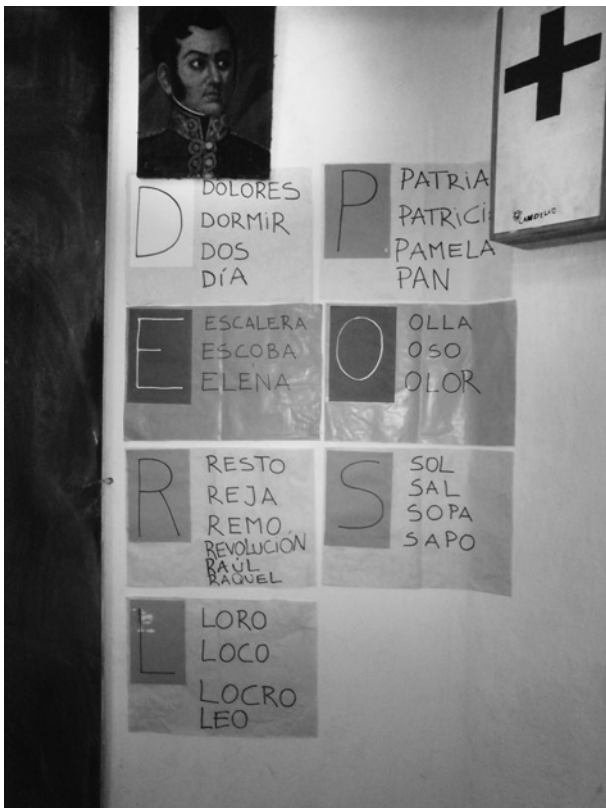 D
DOLORES
DORMIR
DOS
DÍA
P
PATRIA
PATRICI
PAMELA
PAN
E
ESCALERA
ESCOBA
ELENA
O
OLLA
OSO
OLOR
R
RESTO
REJA
REMO
REVOLUCIÓN
RAÚL
RAQUEL
S
SOL
SAL
SOPA
SAPO
L
LORO
LOCO
LOCRO
LEO